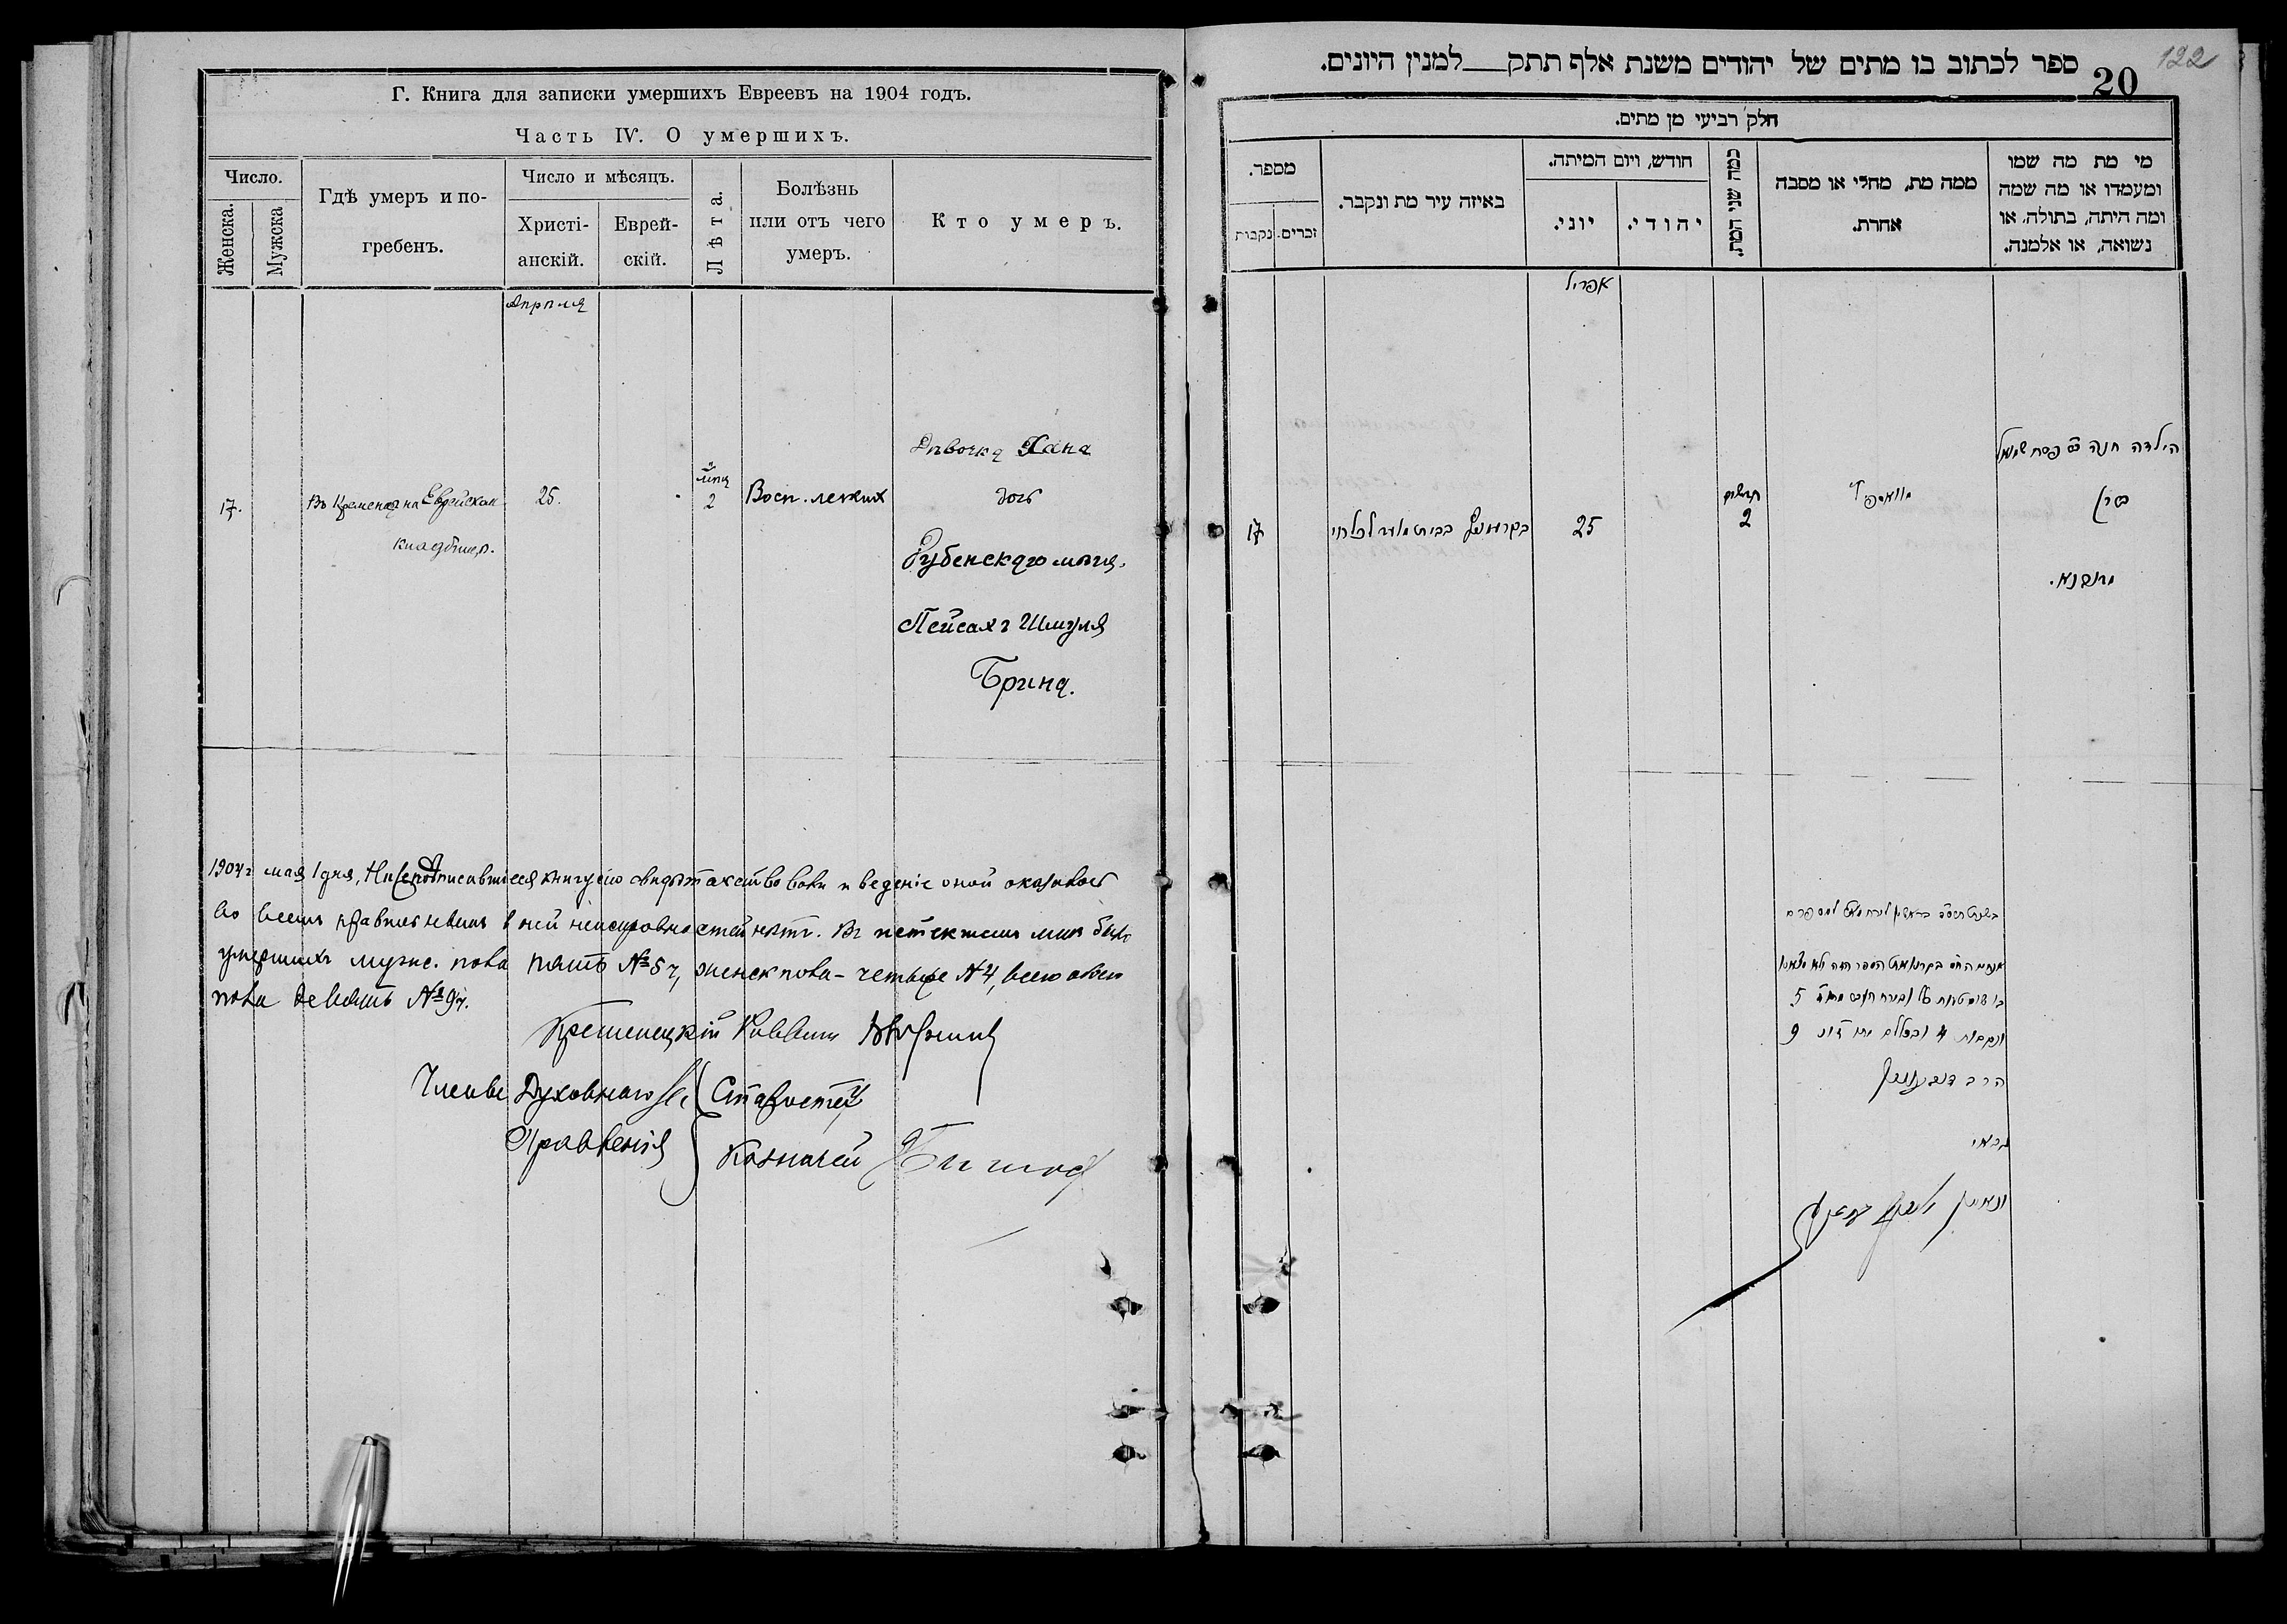 Г. Книга для записки умершихъ Евреевъ на 1904 годъ.
Часть IV. О умершихъ.
Число.
Женска.
Мужска
Гдѣ умеръ и по-
гребенъ.
Число и мѣсяцъ.
Христі-
анскій.
Еврей-
скій.
Лѣта.
Болѣзнь
или отъ чего
умеръ.
Кто умеръ.
Апрѣля
17.
Въ Кременцѣ на Еврейском
кладбищѣ.
25.
мѣц
2
Восп. легких
Дѣвочка Хана
дочь
Рубенскаго мѣщ.
Пейсахъ Шмуля
Брина.
1904 г мая 1 дня, Нижеподписавшиеся книгу сію свидѣтельствовали и веденіе оной оказалось
во всемъ правильнымъ в ней неисправностей нѣтъ. Въ истекшемъ мѣс было
умершихъ мужс. пола пять № 5 ч, женск пола - четыре № 4, всего обоего
пола девять № 9 ч.
Кременецкій Раввинъ
Члены Духовнаго
Правленія
Староста
Казначей
122
20
ספר לכתוב בו מתים של יהודים משנת אלף תתק למנין היונים.
חלק רביעי מן מתים.
מספר.
זכרים.
נקבות
באיזה עיר מת ונקבר.
חודש, ויום המיתה.
יוני.
יהודי.
כמה שני המת.
ממה מת, מחלי או מסבה
אחרת.
מי מת מה שמו
ומעמדו או מה שמה
ומה היתה, בתולה, או
נשואה, או אלמנה.
אפריל
17
25
2
הילדה חנה בת פסח שמואל
ברין
5
9
הרב
גבאי
ונאמן